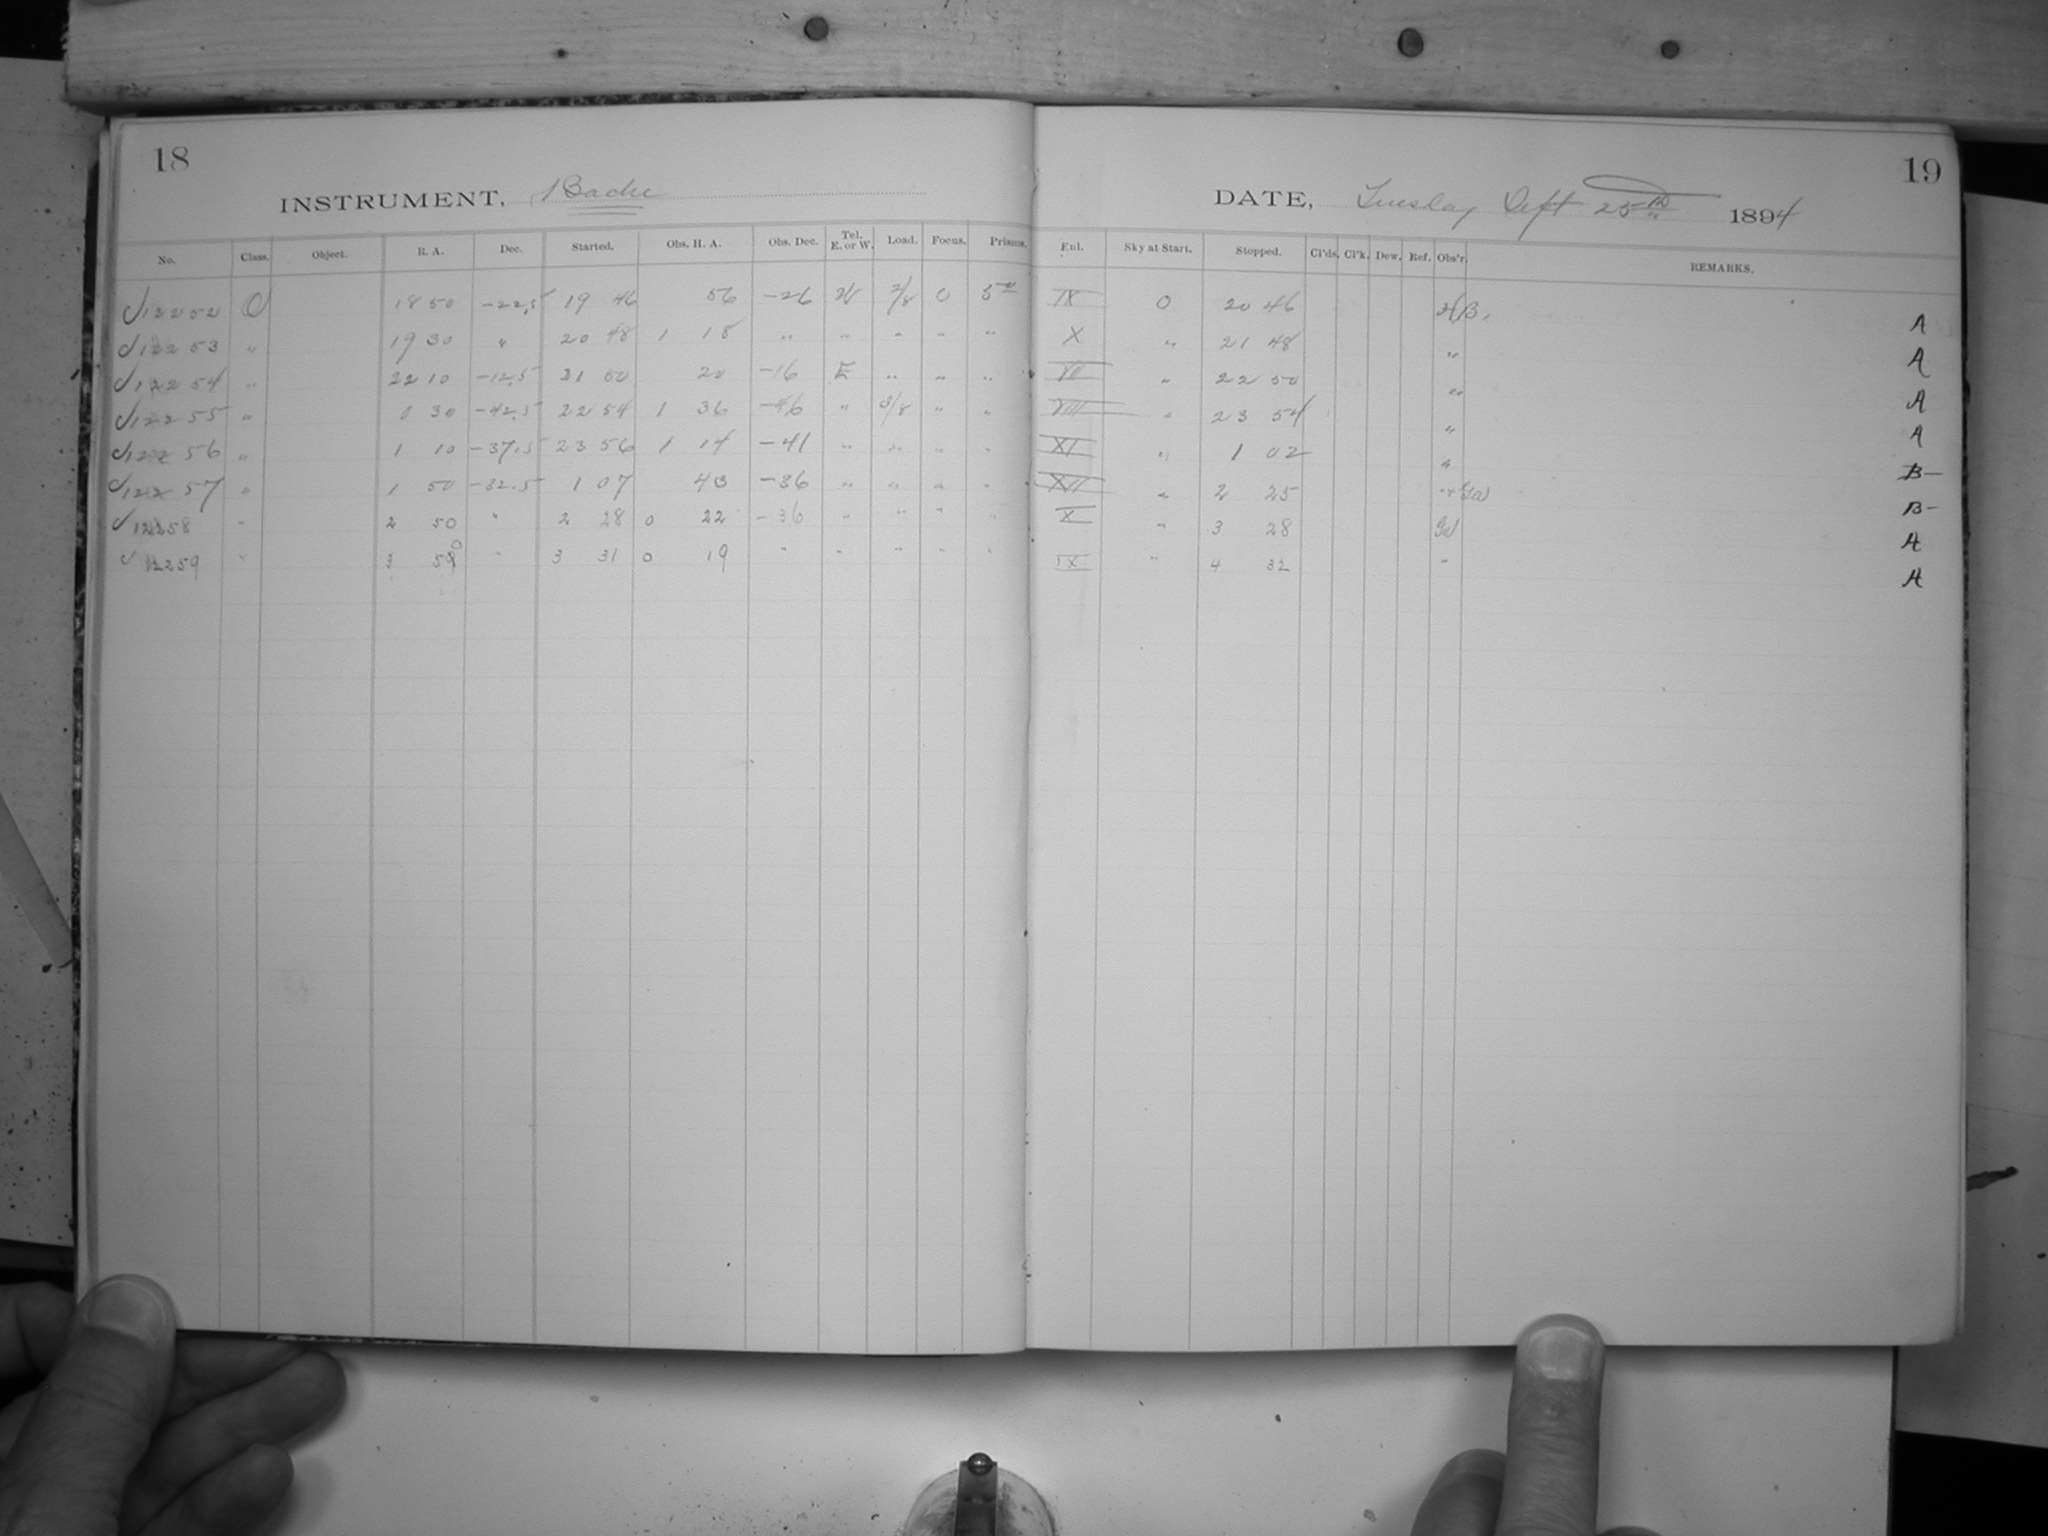 18
INSTRUMENT, Bache
No. Class. Object. R. A. Dec. Started. Obs. H. A. Obs. Dec. Tel. E. or W. Load. Focus. Prisms.
12252 O 18 50 -22.5 19 46 56 -26 W 2/8 0 5º
12253 " 19 30 " 20 48 1 18 " " " " "
12254 " 22 10 -12.5 21 50 20 -16 E " " "
12255 " 0 30 -42.5 22 54 1 36 -46 " 3/8 " "
12256 " 1 10 -37.5 23 56 1 14 -41 " " " "
12257 " 1 50 -32.5 1 07 43 -36 " " " "
12258 " 2 50 " 2 28 0 22 -36 " " " "
12259 " 3 50 " 3 31 0 19 " " " " "
19
DATE, Tuesday Sept 25th 1894
Enl. Sky at Start. Stopped. Cl'ds. Cl'k. Dew. Ref. Obs'r. REMARKS.
IX 0 20 46 HB. A
X " 21 48 " A
VII " 22 50 " A
VIII " 23 54 " A
XI " 1 02 " B-
XII " 2 25 B-
X " 3 28 A
IX " 4 32 " A